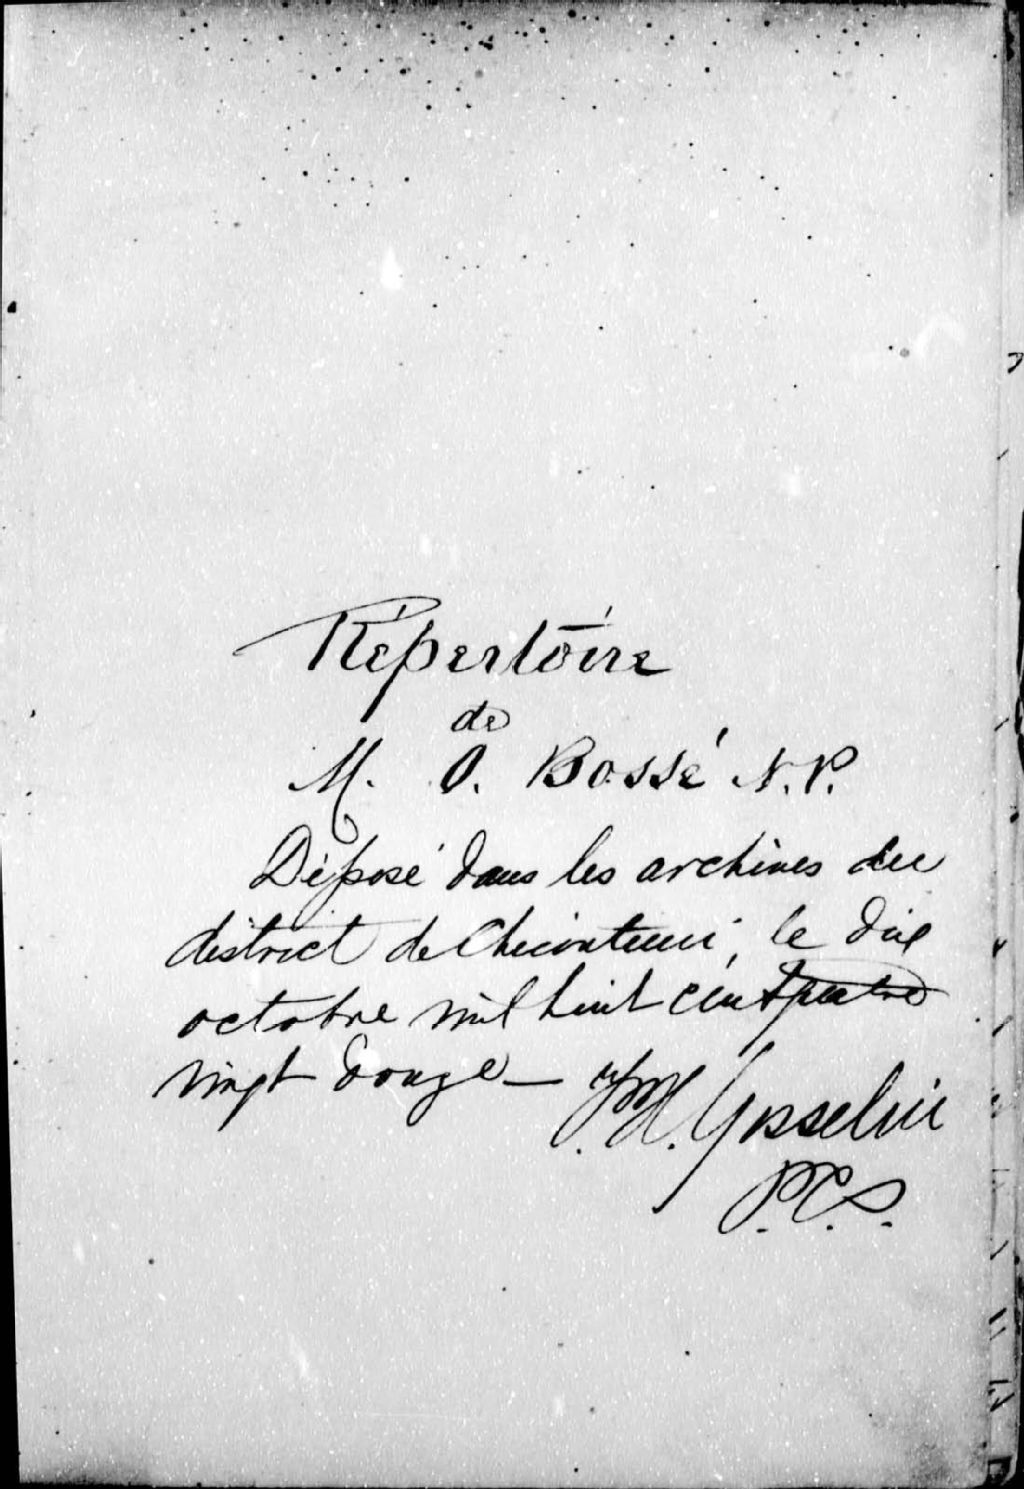 Répertoire
de
M. O. Bossé N.P.
Déposé dans les archives du
district de Chicoutimi, le dix
octobre mil huit cent quatre
vingt douze —
F.H. Gosselin
P.C.S.